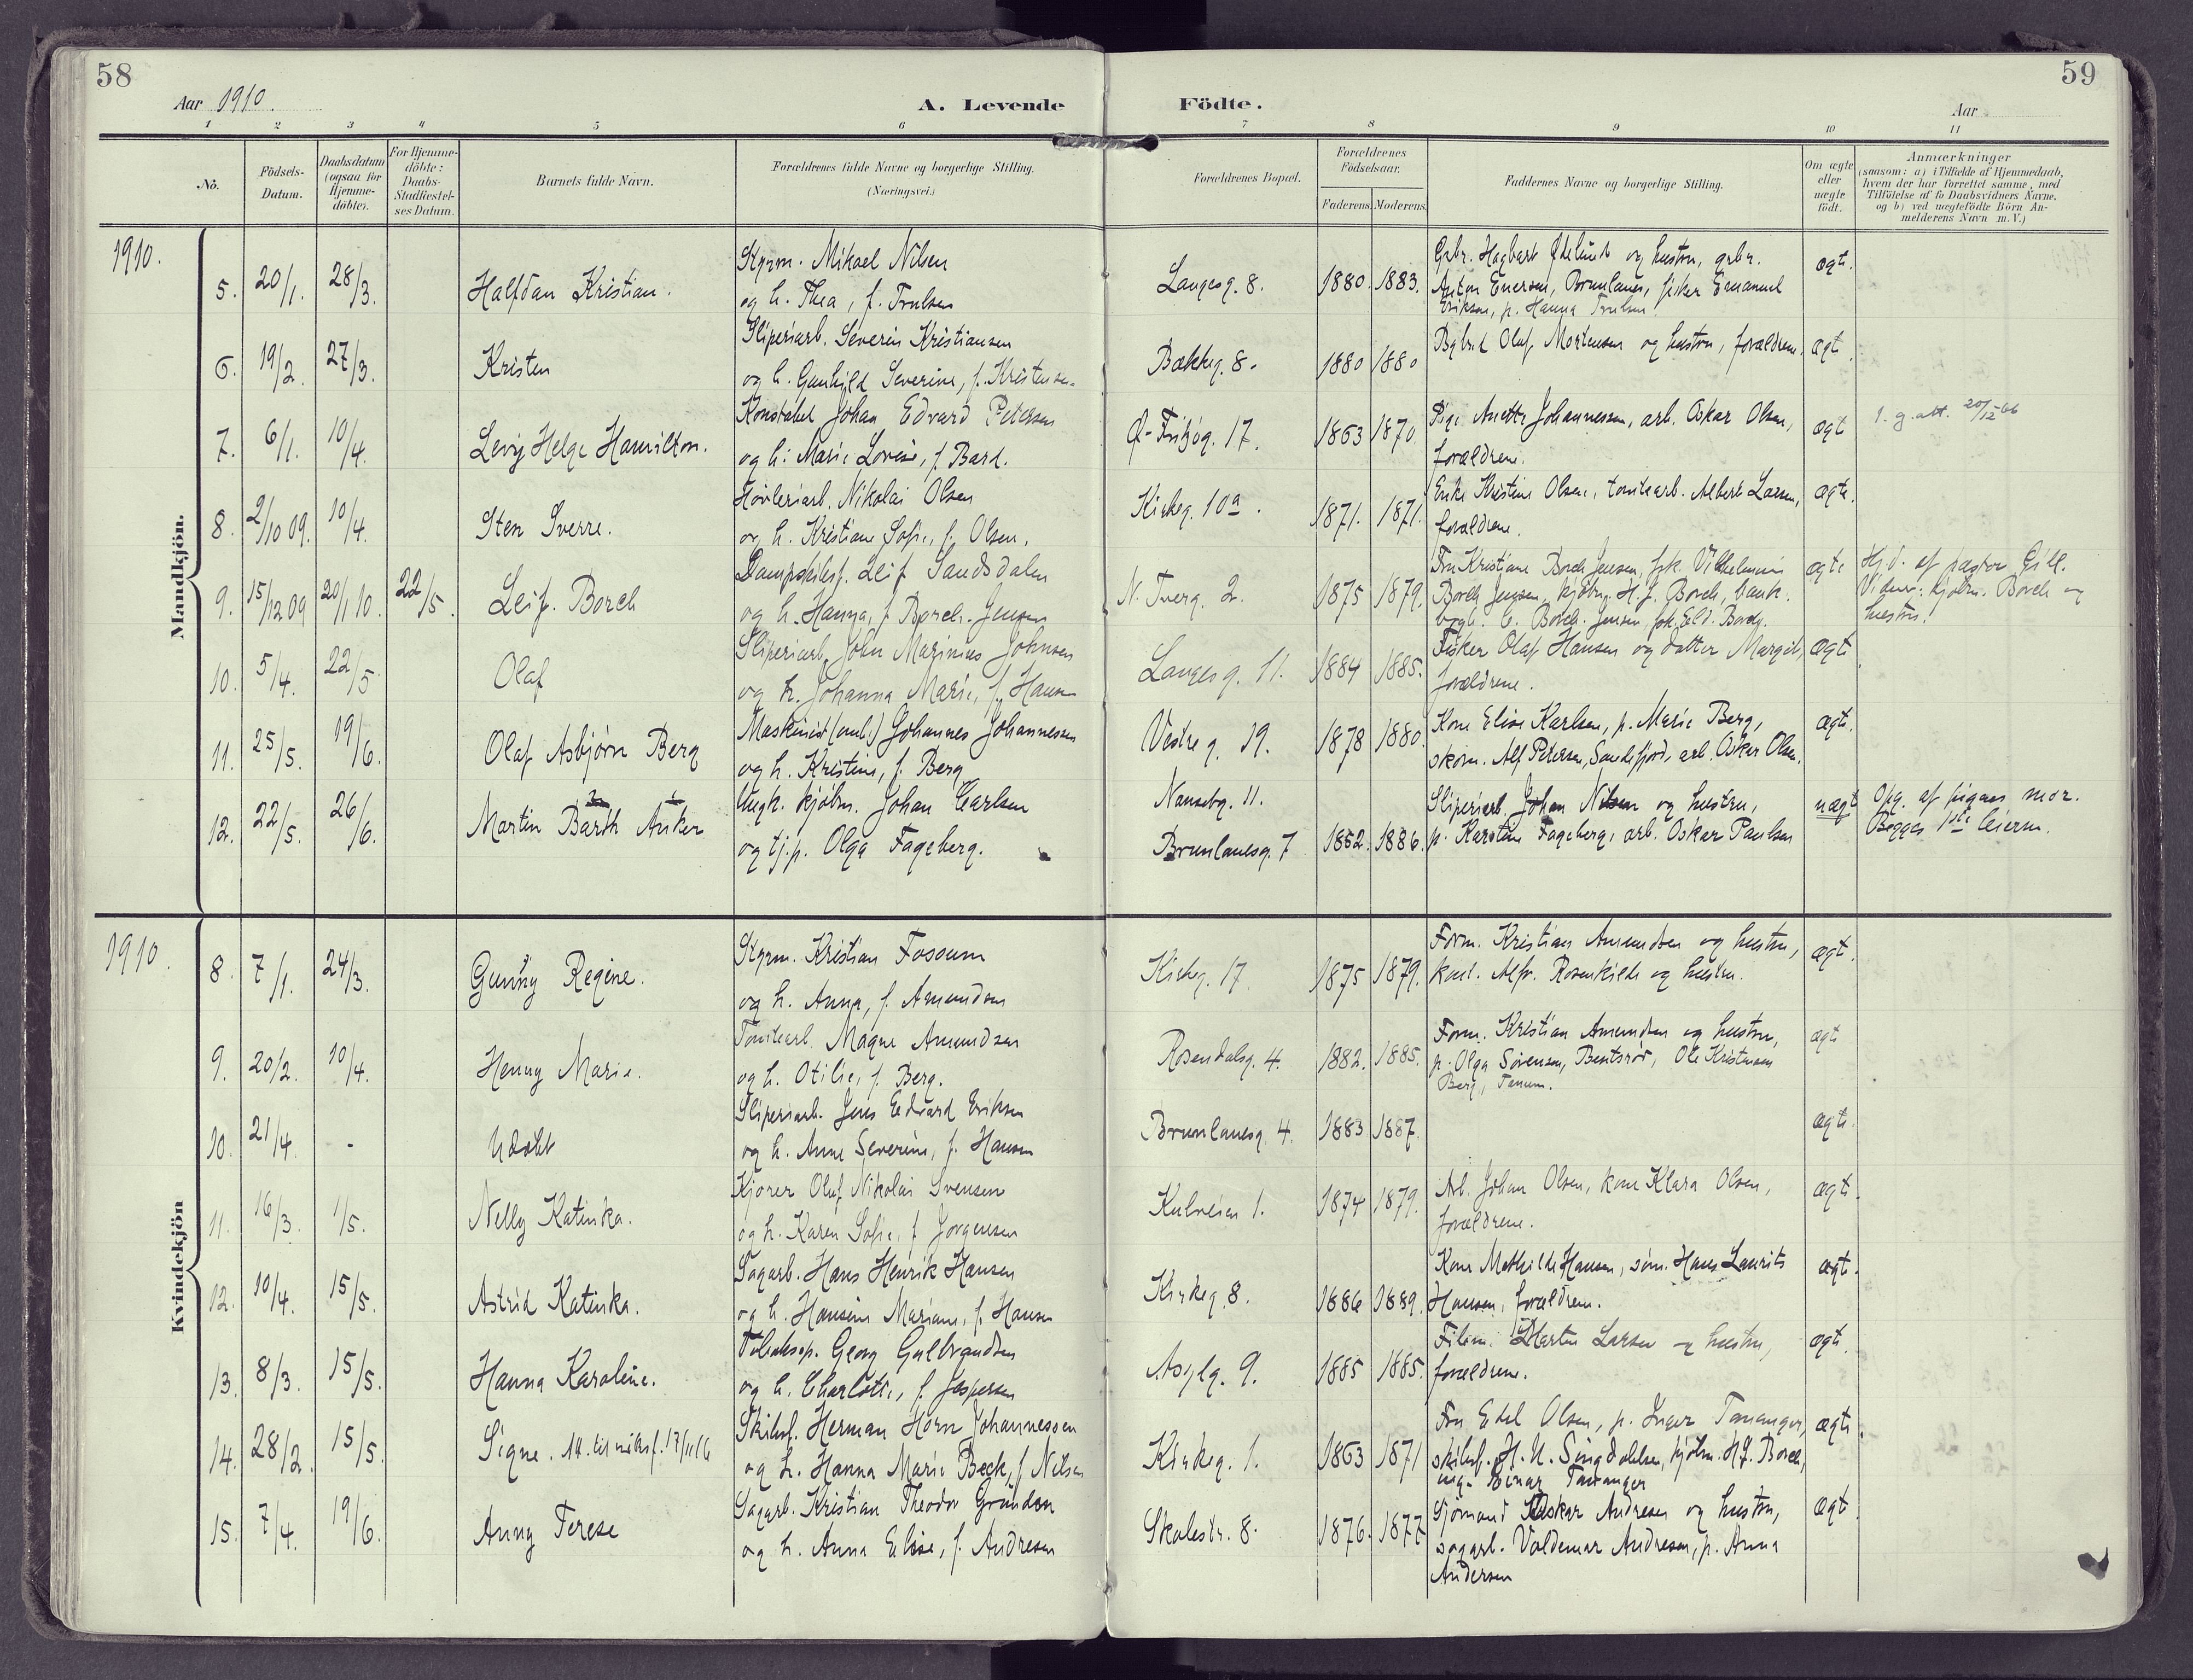 58
Aar 1910.
A. Levende
Födte.
59
Aar
1 2 3 4 5 6 7 8 9 10 11
No.
Födsels-
Datum.
Daabsdatum
(ogsaa for
Hjemme-
döbte).
For Hjemme-
döbte:
Daabs-
Stadfæstel-
ses Datum.
Barnets fulde Navn.
Forældrenes fulde Navne og borgerlige Stilling.
(Næringsvei.)
Forældrenes Bopæl.
Forældrenes
Födselsaar.
Faderens. Moderens.
Faddernes Navne og borgerlige Stilling.
Om ægte
eller
uægte
födt.
Anmærkninger
(saasom: a) i Tilfælde af Hjemmedaab,
hvem der har forrettet samme, med
Tilföielse af to Daabsvidners Navne.
og b) ved uægtefödte Börn An-
melderens Navn m. V.)
Mandkjön.
1910.
5. 20/1. 28/3. Halfdan Kristian.
Styrm. Mikael Nilsen
og h. Thea, f. Trulsen
Langesg. 8. 1880. 1883.
Grbr. Hagbart Ødelund og hustru, grbr.
Anton Enersen, Brunlanes, fisker Emanuel
Eriksen, p. Hanna Trulsen
ægte.
6. 19/2. 27/3. Kristen
Sliperiarb. Severin Kristiansen
og h. Gunhild Severine, f. Kristensen
Bækkeg. 8. 1880 1880
Bybud Olaf Mortensen og hustru, forældrene.
ægt.
7. 6/1. 10/4. Levy Helge Hamilton.
Konstabel Johan Edvard Petersen
og h. Marie Lovise, f. Bard.
Ø. Fritzøg. 17. 1863 1870.
Pige Anette Johannessen, arb. Oskar Olsen,
forældrene.
ægt
1. g. att. 20/12 66
8. 2/10 09. 10/4. Sten Sverre.
Høvleriarb. Nikolai Olsen
og h. Kristiane Sofie, f. Olsen.
Kirkeg. 10a. 1871. 1871.
Enke Kristine Olsen, tomtearb. Albert Larsen,
forældrene.
ægte.
9. 15/12 09 20/1 10. 22/5. Leif Borch
Dampskibsf. Leif Sandsdalen
og h. Hanna, f. Borch-Jensen
N. Tverg. 2. 1875 1879.
Fru Kristiane Borch Jensen, frk. Vilhelmine
Borch Jensen, kjøbm. H. J. Borch, bank.
bogh. C. Borch-Jensen, frk. Eld. Borch.
ægte
Hj.d. af pastor Gill.
Vidner: Kjøbm. Borch og
hustru.
10. 5/4. 22/5. Olaf
Sliperiarb. John Marinius Johnsen
og h. Johanna Marie, f. Hansen
Langesg. 11. 1884 1885.
Fisker Olaf Hansen og datter Margit,
forældrene.
ægte
11. 25/5. 19/6. Olaf Asbjørn Berg
Maskinist (emb.) Johannes Johannessen
og h. Kristine, f. Berg
Vestreg. 19. 1878 1880.
Kone Elise Karlsen, p. Marie Berg,
skom. Alf Petersen, Sandefjord, arb. Oskar Olsen.
ægte.
12. 22/5. 26/6. Martin Barth Anker
Ungk. kjøbm. Johan Carlsen
og tj.p. Olga Fageberg.
Nansetg. 11.
Brunlanesg. 7 1852. 1886.
Sliperiarb. Johan Nilsen og hustru,
p. Karoline Fageberg, arb. Oskar Paulsen
uægt
Opg. af pigens mor.
Begges 1ste leierm.
Kvindekjön
1910.
8. 7/1. 24/3. Gunny Regine.
Styrm. Kristian Fossum
og h. Anna, f. Amundsen
Kirkeg. 17. 1875 1879.
Form. Kristian Amundsen og hustru,
kand. Alfr. Rosenkilde og hustru.
ægt.
9. 20/2. 10/4. Henny Marie.
Tomtearb. Magne Amundsen
og h. Otilie, f. Berg.
Rosendalsg. 4. 1882. 1885.
Form. Kristian Amundsen og hustru,
p. Olga Sørensen, Bentsrød, Ole Kristensen
Berg, Tanum.
ægt
10. 21/4. - Udøbt
Sliperiarb. Jens Edvard Eriksen
og h. Anne Severine, f. Hansen
Brunlanesg. 4. 1883 1887.
ægte.
11. 16/3. 1/5. Nelly Katinka.
Kjører Oluf Nikolai Svensen
og h. Karen Sofie, f. Jørgensen
Kulveien 1. 1874 1879.
Arb. Johan Olsen, kone Klara Olsen,
forældrene.
ægte.
12. 10/4. 15/5. Astrid Katinka.
Sagarb. Hans Henrik Hansen
og h. Hansine Mariane, f. Hansen
Kirkeg. 8. 1886 1889.
Kone Mathilde Hansen, søm. Hans Laurits
Hansen, forældrene.
ægte.
13. 8/3. 15/5. Hanna Karoline.
Tobaksp. Georg Gulbrandsen
og h. Charlotte, f. Jespersen
Asylg. 9. 1885 1885.
Martin Larsen og hustru,
forældrene.
ægte.
14. 28/2. 15/5. Signe. Att. til 17/11 16
Skibsf. Herman Horn Johannessen
og h. Hanna Marie Beck, f. Nilsen
Kirkeg. 1. 1863 1871
Fru Edel Olsen, p. Inger Tananger,
skibsf. H. N. Singdahlsen, kjøbm. H. J. Borch,
ung. Einar Tananger
ægte.
15. 7/4. 19/6. Anny Terese
Sagarb. Kristian Theodor Grundsen
og h. Anna Elise, f. Andresen
Skolestr. 8. 1876. 1877
Sjømand Oskar Andresen og hustru,
sagarb. Valdemar Andresen, p. Anna
Andersen
ægt.